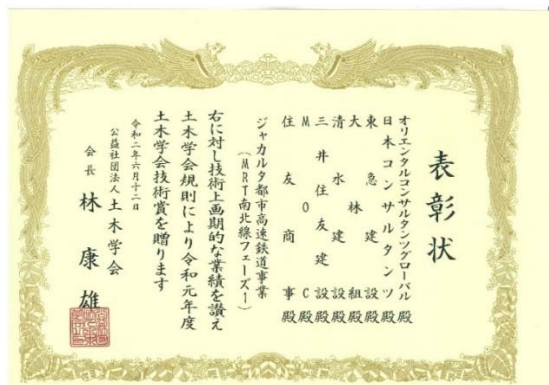 表彰状
オリエンタルコンサルタンツグローバル殿
日本コンサルタンツ殿
東急建設殿
大林組殿
清水建設殿
三井住友建設殿
MOC殿
住友商事殿
ジャカルタ都市高速鉄道事業
(MRT南北線フェーズ1)
右に対し技術上画期的な業績を讃え
土木学会規則により令和元年度
土木学会技術賞を贈ります
令和二年六月十二日
公益社団法人土木学会
会長 林康雄